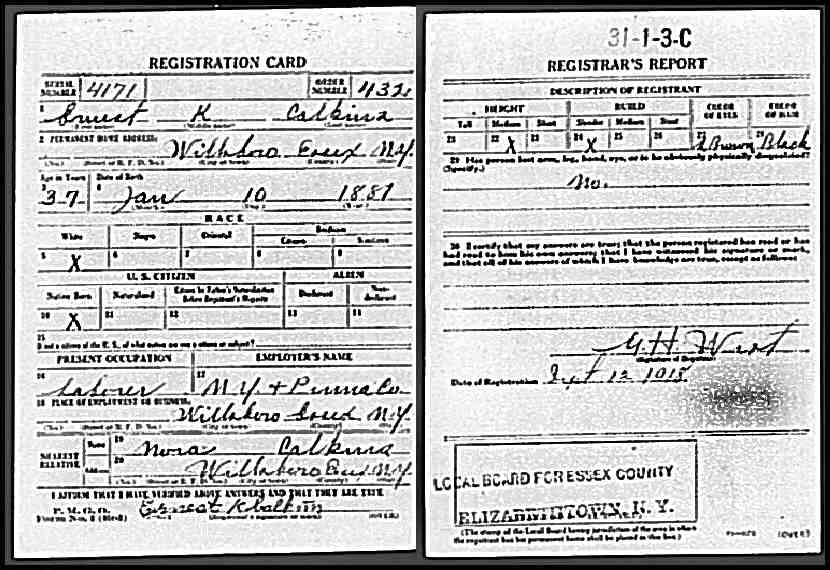 REGISTRATION CARD
SERIAL NUMBER 4171 ORDER NUMBER 432
1 Ernest K Calkins
2 PERMANENT HOME ADDRESS:
Willsboro Essex N.Y.
Age in Years Date of Birth
37 Jan 10 1881
RACE
White Negro Oriental Indian
Citizen Noncitizen
5 X 6 7 8 9
U. S. CITIZEN ALIEN
Native Born Naturalized Citizen by Father's Naturalization Before Registrant's Majority Declarant Non-declarant
10 X 11 12 13 14
15
If not a citizen of the U. S., of what nation are you a citizen or subject?
PRESENT OCCUPATION EMPLOYER'S NAME
16 Laborer 17 N Y + Penna Co
18 PLACE OF EMPLOYMENT OR BUSINESS:
Willsboro Essex N.Y.
(No.) (Street or R. F. D. No.) (City or town) (County) (State)
NEAREST RELATIVE Name 19 Nora Calkins
Address 20 Willsboro Essex N.Y.
(No.) (Street or R. F. D. No.) (City or town) (County) (State)
I AFFIRM THAT I HAVE VERIFIED ABOVE ANSWERS AND THAT THEY ARE TRUE
P. M. G. O.
Form No. 1 (Red) Ernest K Calkins
(Registrant's signature or mark) (OVER)
31-1-3-C
REGISTRAR'S REPORT
DESCRIPTION OF REGISTRANT
HEIGHT BUILD COLOR OF EYES COLOR OF HAIR
Tall Medium Short Slender Medium Stout
21 22 X 23 24 X 25 26 27 Brown 28 Black
29 Has person lost arm, leg, hand, eye, or is he obviously physically disqualified?
(Specify.)
No.
30 I certify that my answers are true; that the person registered has read or has
had read to him his own answers; that I have witnessed his signature or mark,
and that all of his answers of which I have knowledge are true, except as follows:
G. H. Wist
(Signature of Registrar)
Date of Registration Sept 12 1918
LOCAL BOARD FOR ESSEX COUNTY
ELIZABETHTOWN, N. Y.
(The stamp of the Local Board having jurisdiction of the area in which
the registrant has his permanent home shall be placed in this box.)
(OVER)